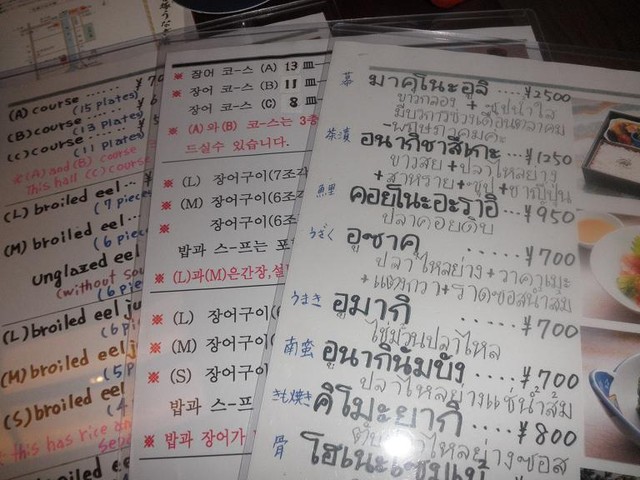 (A) course ......
(15 plates)
(B) course .....
(13 plates)
(C) course ....
(11 plates)
※(A) and (B) course
this hall (C) course
(L) broiled eel...
(7 piece
(M) broiled eel...
(6 piec
unglazed eel
(without so
(6 pie
(L) broiled eel ju
(6 pi
(M) broiled eel j
(5 p
(S) broiled eel
(4
this has rice an
broiled ee
※ 장어 코-스 (A) 13 皿
※ 장어 코-스 (B) 11 皿
장어 코-스 (C) 8 皿
※ (A)와 (B) 코-스는 3층
드실수 있습니다.
※ (L) 장어구이(7조각
※ (M) 장어구이(6조각
※ 장어구이(6조
밥과 스-프는 포
※ (L)과(M)은간장,설
※ (L) 장어구이(
※ (M) 장어구이(
※ (S) 장어구이(
밥과 스-프
※ 밥과 장어가
幕 มาคุโนะอุลิ ....¥2500
ข้าวกล่อง + ซุปน้ำใส
มีบริการช่วงเดือนตุลาคม
-พฤษภาคมค่ะ
茶漬 อูนากิชาสึเกะ...¥1250
ข้าวสวย+ปลาไหลย่าง
+สาหร่าย+ซุป+ชาญี่ปุ่น
鯉 คอยโนะอะราอิ ...¥950
ปลาคอยดิบ
うざく อูซาคุ .......¥700
ปลาไหลย่าง+วาคาเมะ
+แตงกวา+ราดซอสน้ำส้ม
うまき อูมากิ ......¥700
ไข่ม้วนปลาไหล
南蛮 อูนากินัมบัง ....¥700
ปลาไหลย่างแช่น้ำส้ม
きも焼き คิโมะยากิ ....¥800
ตับปลาไหลย่างซอส
骨 โฮเนะเซมเบ้